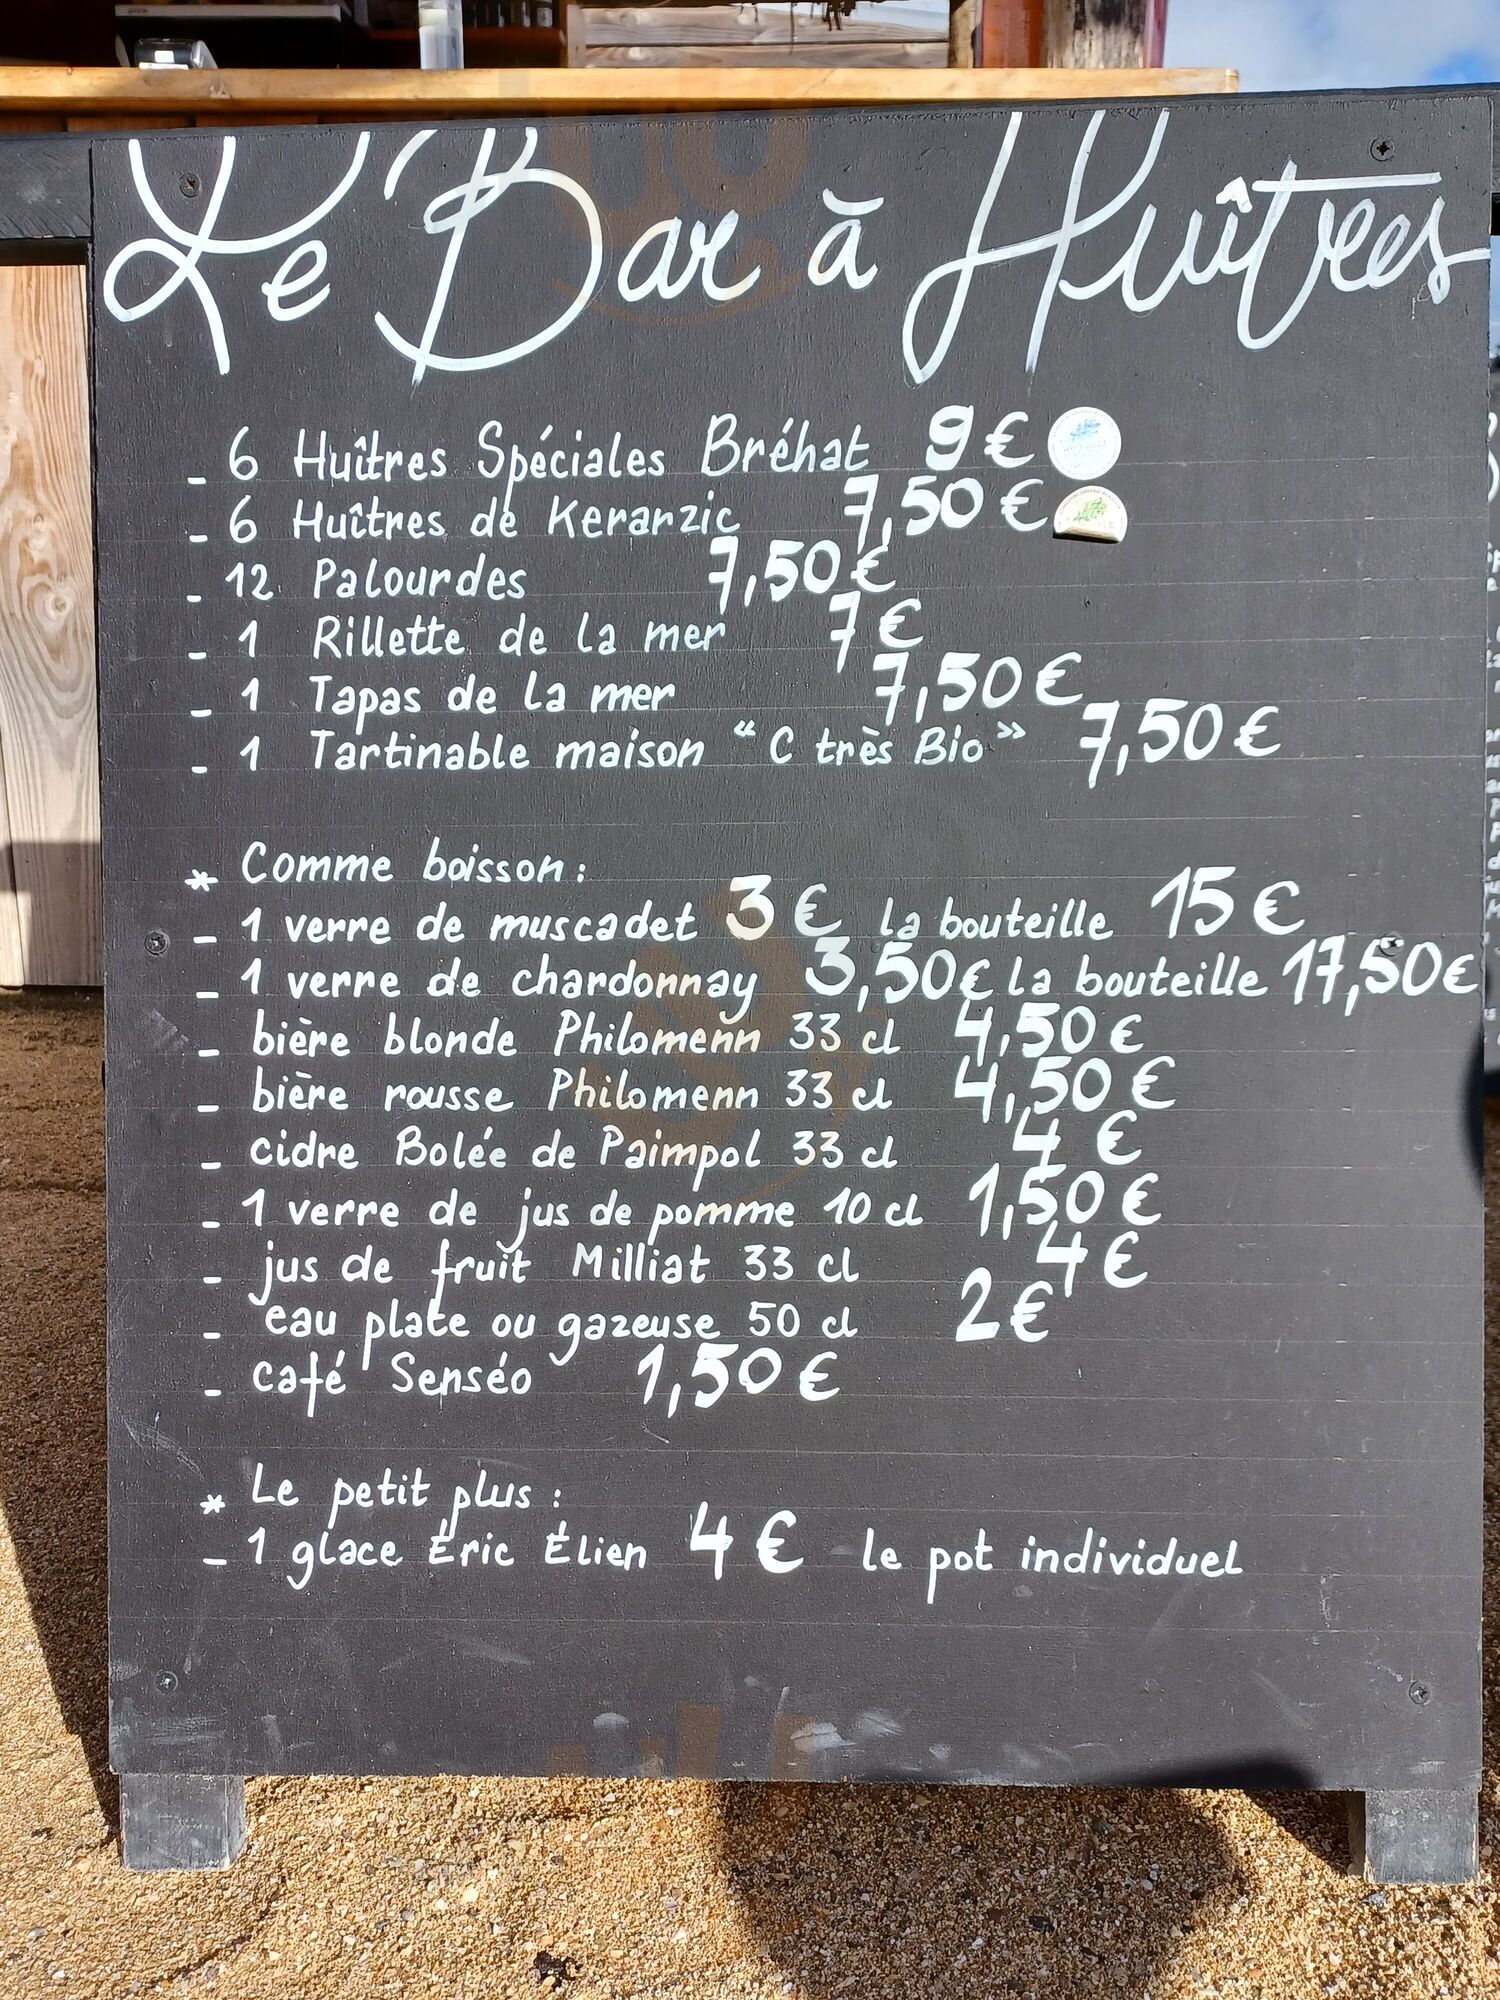 Le Bar à Huîtres
- 6 Huîtres Spéciales Bréhat 9 €
- 6 Huîtres de Kerarzic 7,50 €
- 12 Palourdes 7,50 €
- 1 Rillette de la mer 7 €
- 1 Tapas de la mer 7,50 €
- 1 Tartinable maison “ C très Bio ” 7,50 €
* Comme boisson :
- 1 verre de muscadet 3 € la bouteille 15 €
- 1 verre de chardonnay 3,50 € la bouteille 17,50 €
- bière blonde Philomenn 33 cl 4,50 €
- bière rousse Philomenn 33 cl 4,50 €
- cidre Bolée de Paimpol 33 cl 4 €
- 1 verre de jus de pomme 10 cl 1,50 €
- jus de fruit Milliat 33 cl 4 €
- eau plate ou gazeuse 50 cl 2 €
- café Senséo 1,50 €
* Le petit plus :
- 1 glace Éric Élien 4 € le pot individuel